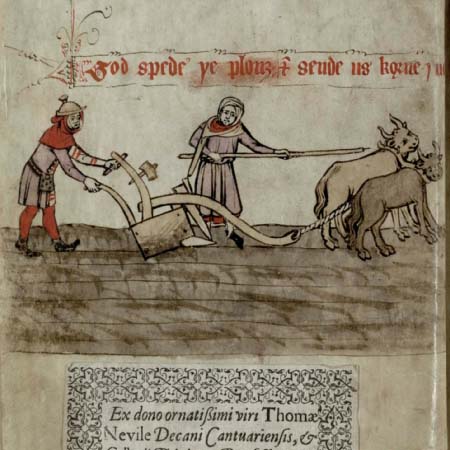 God spede ye plouȝ & sende us korne
Ex dono ornatißimi viri Thomæ
Nevile Decani Cantuariensis, &